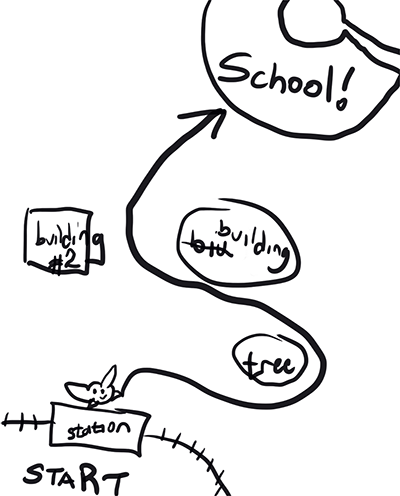 School!
building
building
#2
tree
station
START